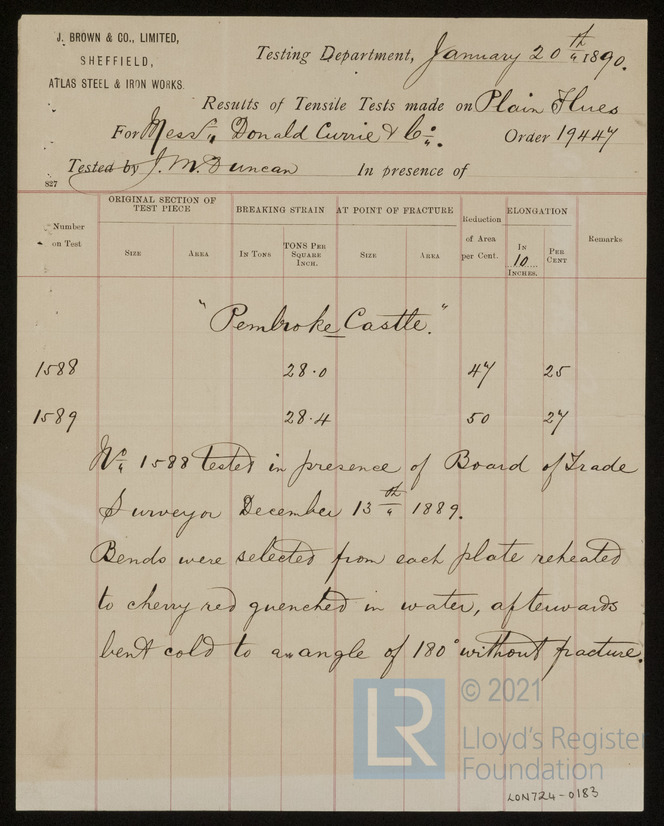 J. BROWN & CO., LIMITED,
SHEFFIELD,
ATLAS STEEL & IRON WORKS.
Testing Department, January 20th 1890.
Results of Tensile Tests made on Plain Flues
For Messrs. Donald Currie & Co. Order 19447
Tested by J. M. Duncan In presence of
827
Number on Test
ORIGINAL SECTION OF TEST PIECE
SIZE AREA
BREAKING STRAIN
IN TONS TONS PER SQUARE INCH.
AT POINT OF FRACTURE
SIZE AREA
Reduction of Area per Cent.
ELONGATION
IN 10 INCHES. PER CENT
Remarks
"Pembroke Castle."
1588 28.0 47 25
1589 28.4 50 27
No. 1588 tested in presence of Board of Trade
Surveyor December 13th 1889.
Bends were selected from each plate reheated
to cherry red quenched in water, afterwards
bent cold to an angle of 180° without fracture.
LR
© 2021
Lloyd's Register
Foundation
LON724-0183